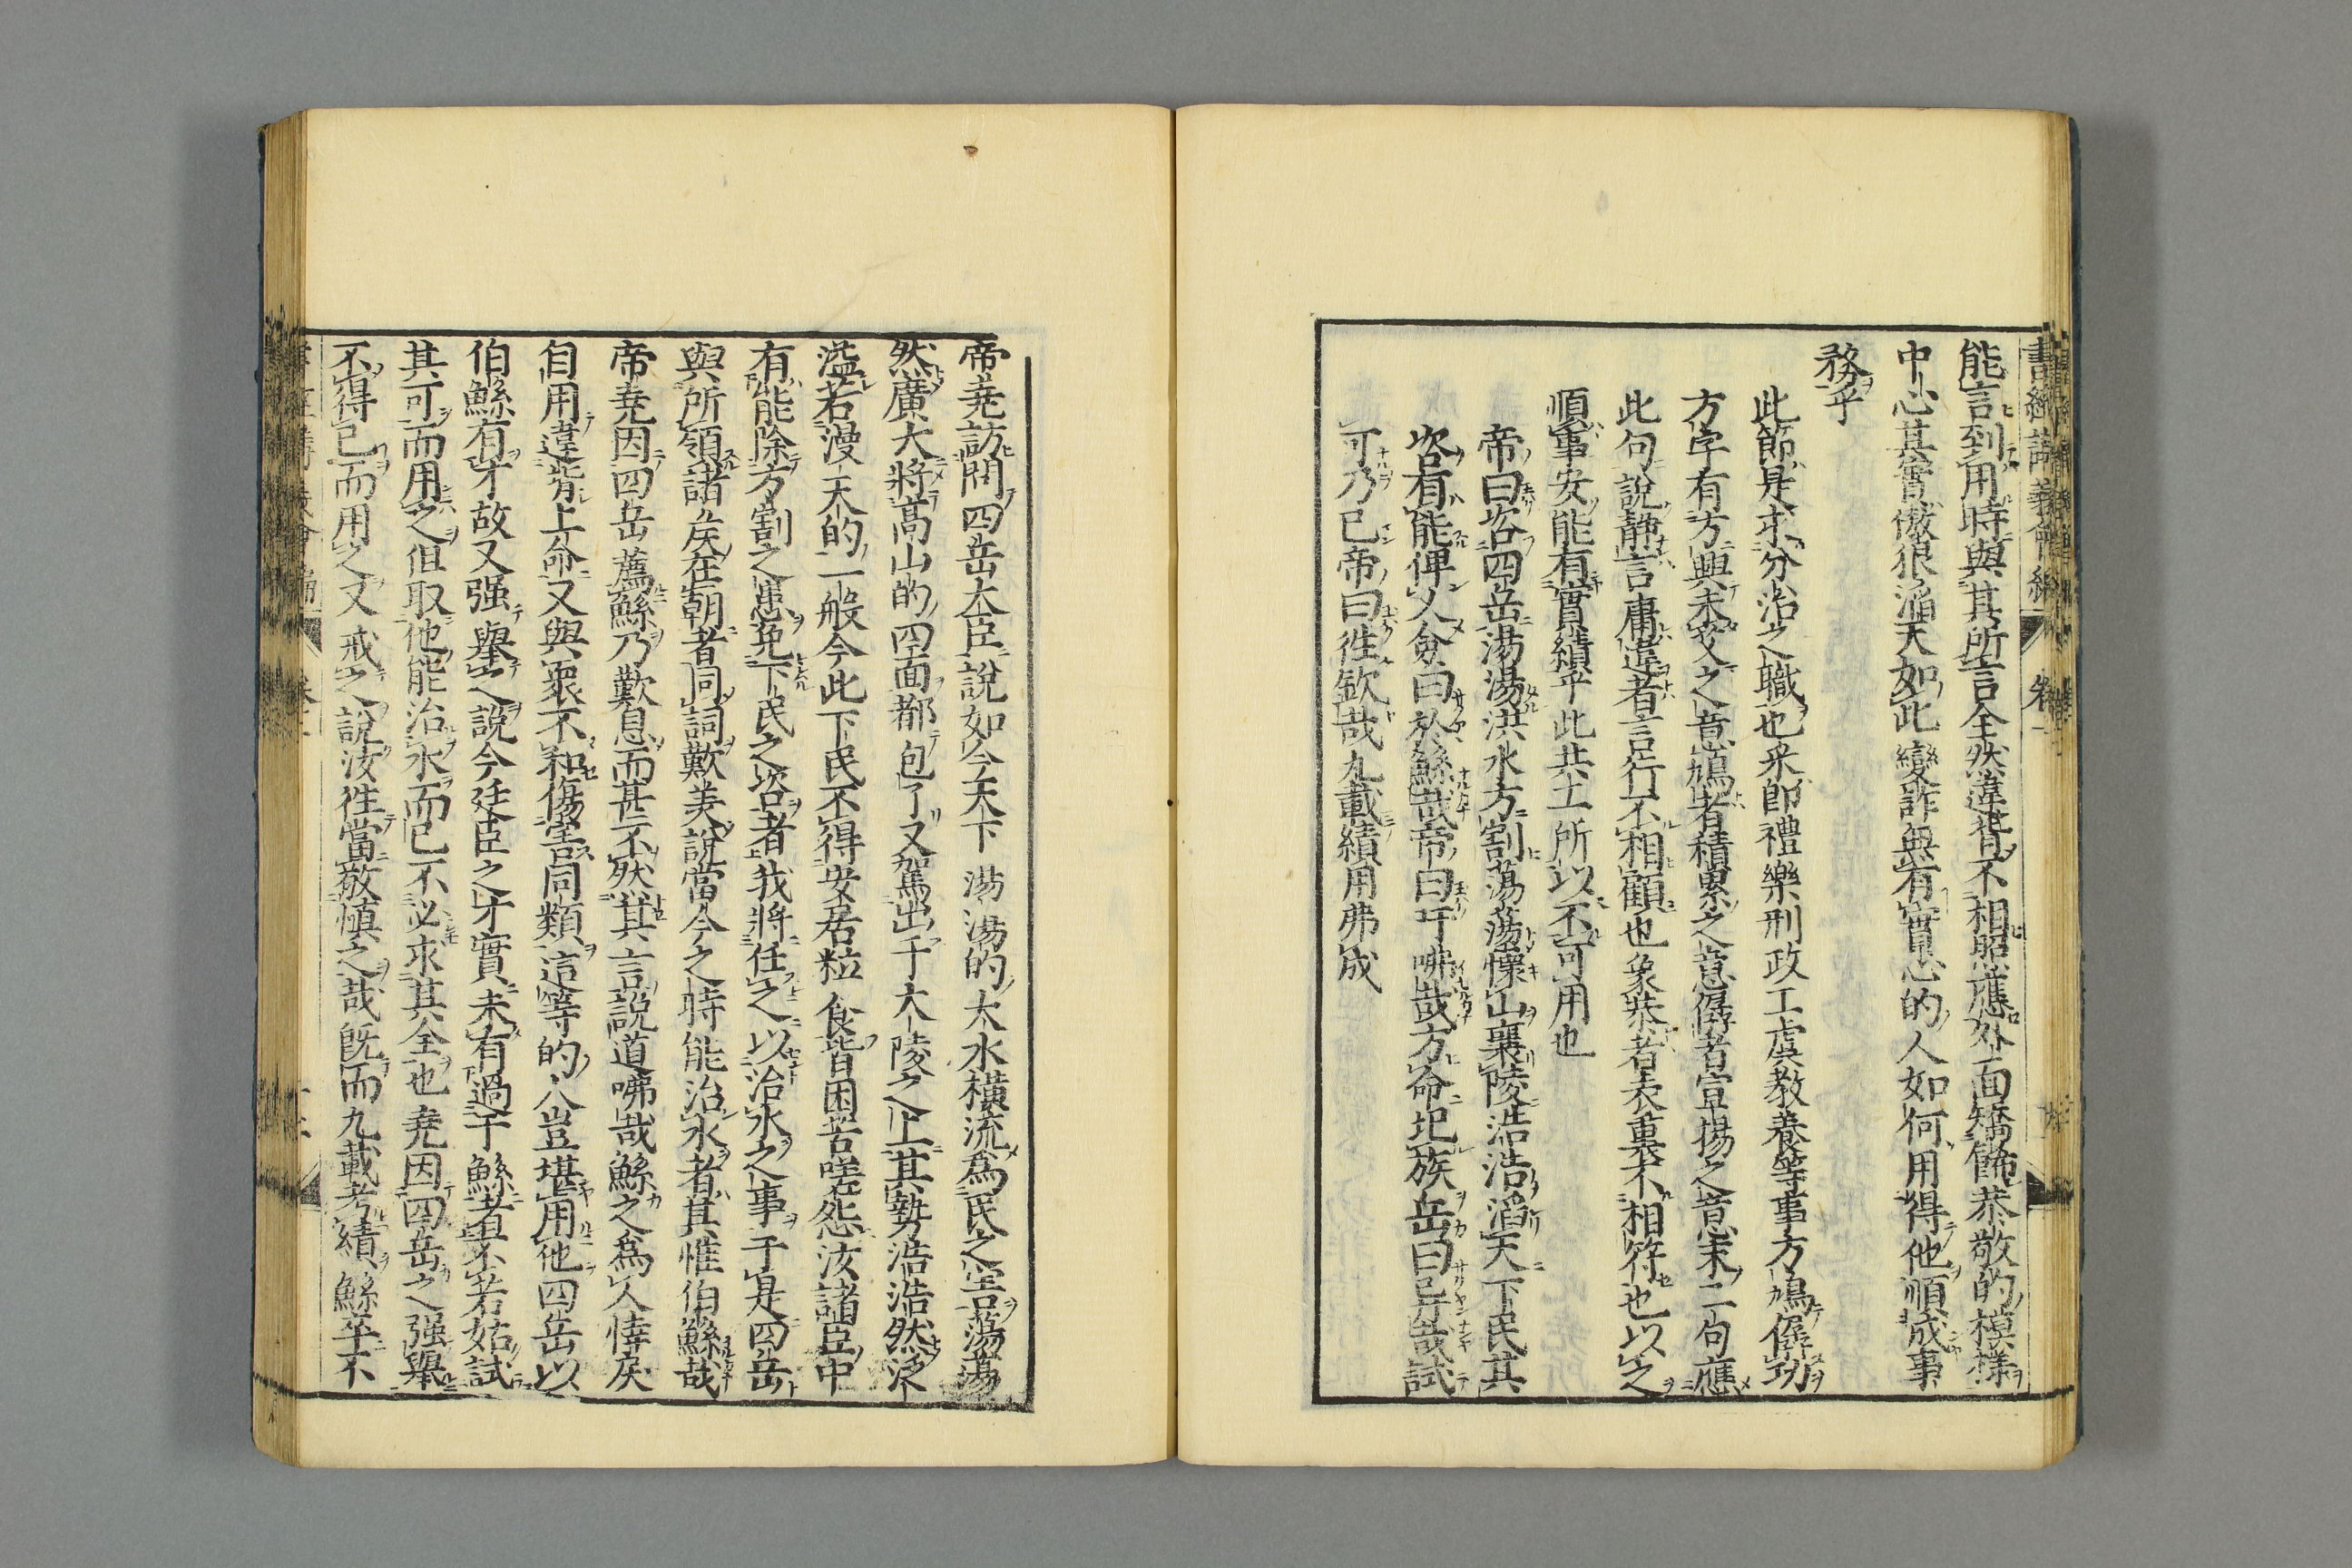 書經講義會編 卷一
能言到用時與其所言全然違背不相照應外面矯飾恭敬的模樣
中心其實傲狠滔天如此變詐無有實心的人如何用得他順成事
務乎
此節是求分治之職也采即禮樂刑政工虞教養等事方鳩僝功
方字有方興未艾之意鳩者積累之意僝者宣揚之意末二句應
此句說靜言庸違者言行不相顧也象恭者表裏不相符也以之
順事安能有實績乎此共工所以不可用也
帝曰咨四岳湯湯洪水方割蕩蕩懷山襄陵浩浩滔天下民其
咨有能俾乂僉曰於鯀哉帝曰吁咈哉方命圮族岳曰异哉試
可乃已帝曰徃欽哉九載績用弗成
帝堯訪問四岳大臣說如今天下湯湯的大水橫流爲民之害蕩蕩
然廣大將高山的四面都包了又駕出于大陵之上其勢浩浩然泛
溢若漫天的一般今此下民不得安居粒食皆困苦嗟怨汝諸臣中
有能除方割之患免下民之咨者我將任之以治水之事于是四岳
與所領諸侯在朝者同詞歎美說當今之時能治水者其惟伯鯀哉
帝堯因四岳薦鯀乃歎息而甚不然其言說道咈哉鯀之爲人悻戾
自用違背上命又與衆不和傷害同類這等的人豈堪用他四岳以
伯鯀有才故又强舉之說今廷臣之才實未有過于鯀者不若姑試
其可而用之但取他能治水而已不必求其全也堯因四岳之强舉
不得已而用之又戒之說汝徃當敬慎之哉既而九載考績鯀卒不